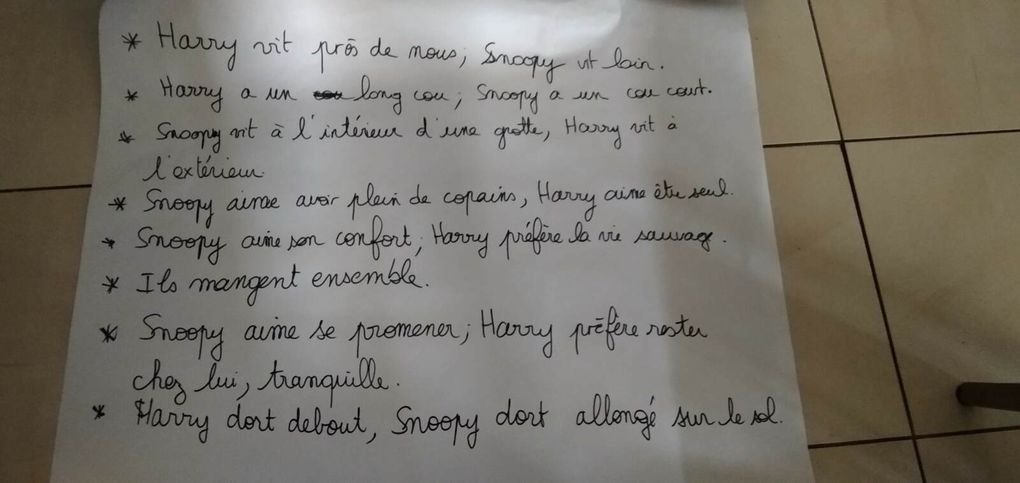 * Harry vit près de nous; Snoopy vit loin.
* Harry a un long cou; Snoopy a un cou court.
* Snoopy vit à l'intérieur d'une grotte, Harry vit à
l'extérieur.
* Snoopy aime avoir plein de copains, Harry aime être seul.
* Snoopy aime son confort; Harry préfère la vie sauvage.
* Ils mangent ensemble.
* Snoopy aime se promener; Harry préfère rester
chez lui, tranquille.
* Harry dort debout, Snoopy dort allongé sur le sol.